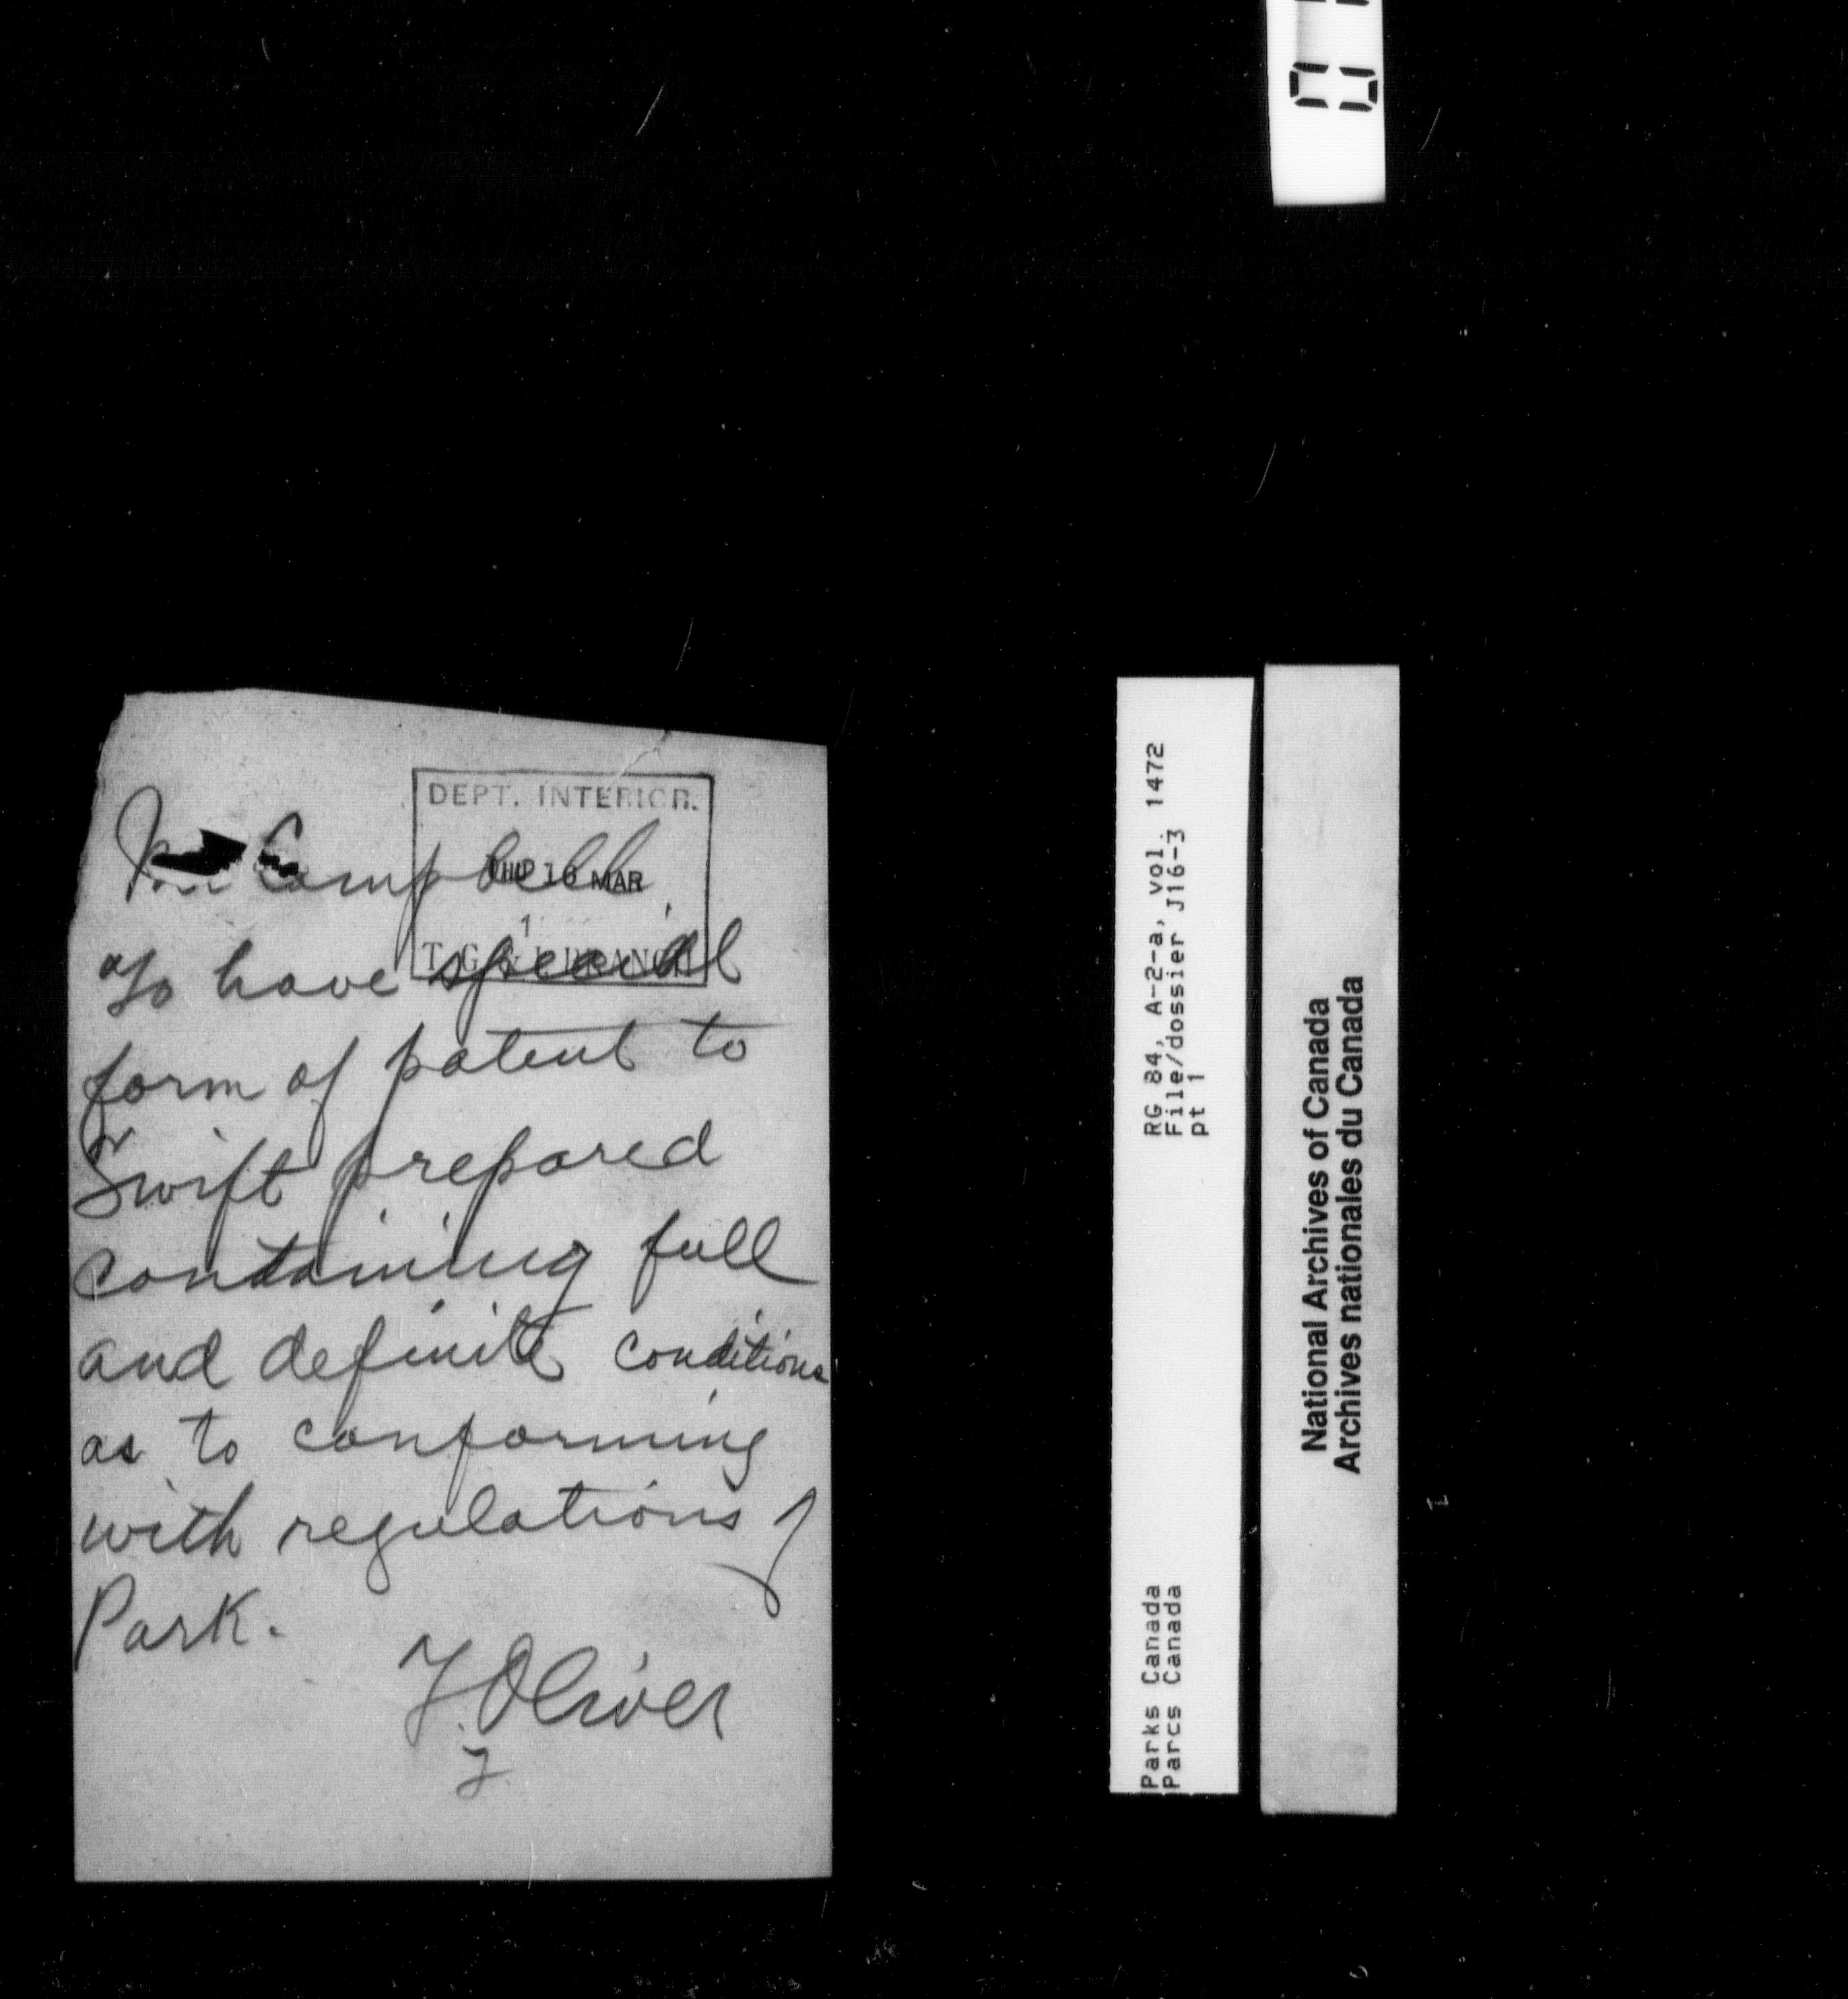 DEPT. INTERIOR.
THU 16 MAR
1
T. G. & I. BRANCH
Mr Campbell,
To have special
form of patent to
Swift prepared
containing full
and definite conditions
as to conforming
with regulations of
Park.
F. Oliver
RG 84, A-2-a, vol. 1472
File/dossier J16-3
pt 1
Parks Canada
Parcs Canada
National Archives of Canada
Archives nationales du Canada